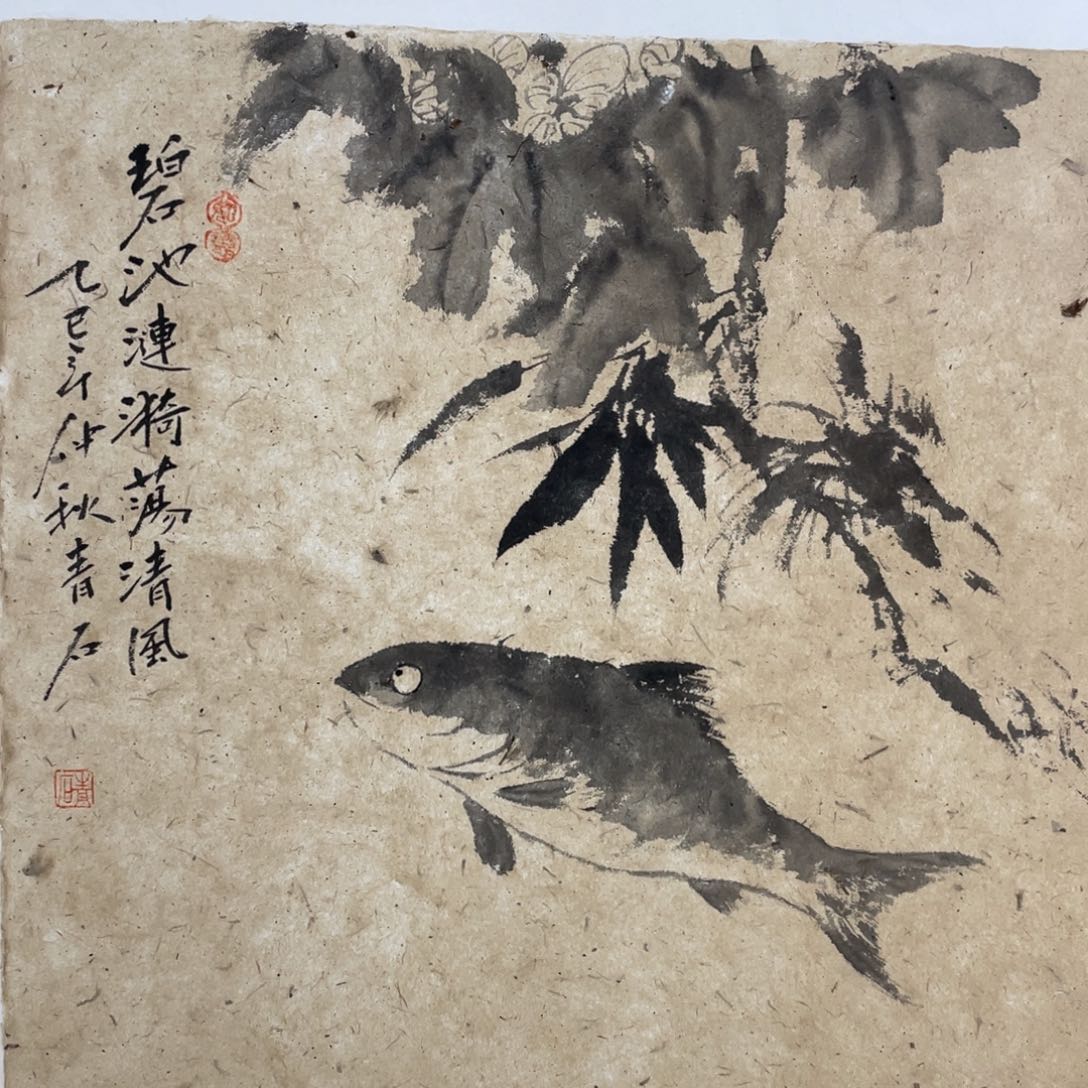 碧池漣漪蕩清風
乙巳年仲秋青石
青石